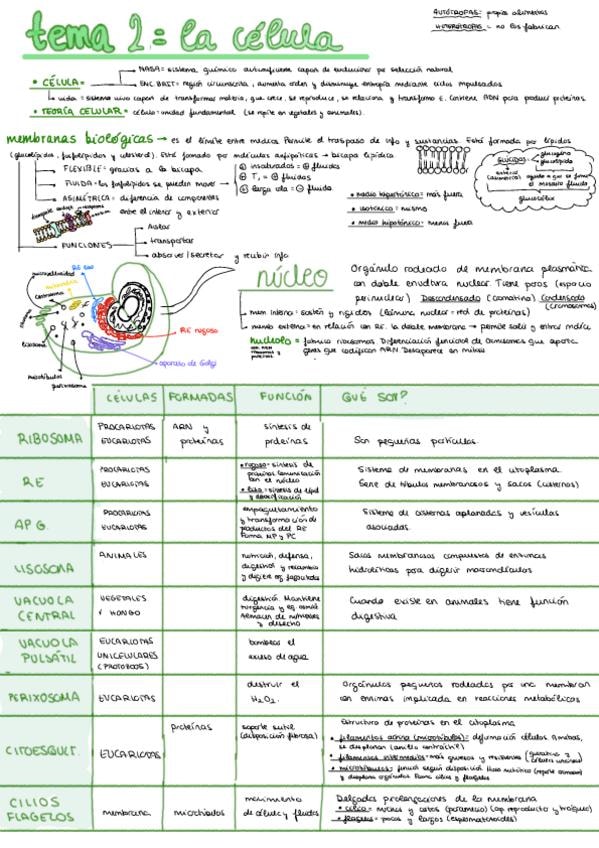 AUTÓTROFAS: propios alimentos
HETERÓTROFAS: no los fabrican
tema 2: la célula
• CÉLULA
NASA = sistema químico autosuficiente capaz de evolucionar por selección natural
ENC. BRIT = región circunscrita, aumenta orden y disminuye entropía mediante ciclos impulsados
vida = sistema vivo capaz de transformar materia, que crece, se reproduce, se relaciona y transforma E. Contiene ADN para producir proteínas
• TEORÍA CELULAR = célula = unidad fundamental (se repite en vegetales y animales)
membranas biológicas → es el límite entre medios. Permite el traspaso de info y sustancias. Está formada por lípidos
(glucolípidos, fosfolípidos y colesterol). Está formado por moléculas anfipáticas → bicapa lipídica
FLEXIBLE = gracias a la bicapa
FLUIDA = los fosfolípidos se pueden mover
ASIMÉTRICA = diferencia de componentes
entre el interior y exterior
⊕ insaturados = ⊕ fluidos
⊕ T, = ⊕ fluidos
⊕ larga = ⊖ fluida
GLÚCIDOS
exterior
glucocálix
• medio hipertónico = más fuera
• isotónico = mismo
• medio hipotónico = menos fuera
FUNCIONES
Aislar
transportar
absorver/secretar y recibir info
RE liso
mitocondria
centrosoma
lisosoma
microtúbulos
peroxisoma
RE rugoso
aparato de Golgi
núcleo
Orgánulo rodeado de membrana plasmática
con doble envoltura nuclear. Tiene poros (espacio
perinuclear) Descondensado (cromatina) Condensado
(cromosomas)
mem interna = sostén y rígidos (lámina nuclear = red de proteínas)
memb externa = en relación con RE. la doble membrana → permite salir y entrar
nucleolo = fabrica ribosomas. Diferenciación funcional de cromosomas que aporta
genes que codifican ARN. Desaparece en mitosis
CÉLULAS FORMADAS FUNCIÓN QUÉ SON?
RIBOSOMA
PROCARIOTAS
EUCARIOTAS
ARN y
proteínas
síntesis de
proteínas
Son pequeñas partículas.
RE
PROCARIOTAS
EUCARIOTAS
• rugoso = síntesis de
proteínas comunicación
con el núcleo
• liso = síntesis de lípid
y detoxificación
Sistema de membranas en el citoplasma.
Serie de túbulos membranosos y sacos (cisternas)
AP G.
PROCARIOTAS
EUCARIOTAS
empaquetamiento
y transformación de
productos del RE
Forma MP y PC
Sistema de cisternas aplanadas y vesículas
asociadas.
LISOSOMA
ANIMALES
nutrición, defensa,
digestión y recambio
Sacos membranosos compuestos de enzimas
hidrolíticas para digerir macromoléculas
VACUOLA
CENTRAL
VEGETALES
Y HONGO
digestión. Mantiene
turgencia y eq. osmót
Almacén de nutrientes
y desecho
Cuando existe en animales tiene función
digestiva
VACUOLA
PULSÁTIL
EUCARIOTAS
UNICELULARES
(PROTOZOOS)
bombear el
exceso de agua
PERIXOSOMA
EUCARIOTAS
destruir el
H₂O₂.
Orgánulos pequeños rodeados por una membran
con enzimas implicada en reacciones metabólicas
CITOESQULT.
EUCARIOTAS
proteínas
soporte sutil
(disposición fibrosa)
Estructura de proteínas en el citoplasma
• filamentos actina (microtúbulos) = deformación células. Amibas,
se desplazan (anillo contráctil)
• filamentos intermedios = más gruesos y resistentes
• microtúbulos = función según disposición. Huso mitótico
y desplaza orgánulos. Forma cilios y flagelos
CILIOS
FLAGELOS
membrana
microtúbulos
movimiento
de célula y fluidos
Delgadas prolongaciones de la membrana
• cilios = muchos y cortos (paramecio) (ap reproducto y tráquea)
• flagelos = pocos y largos (espermatozoides)